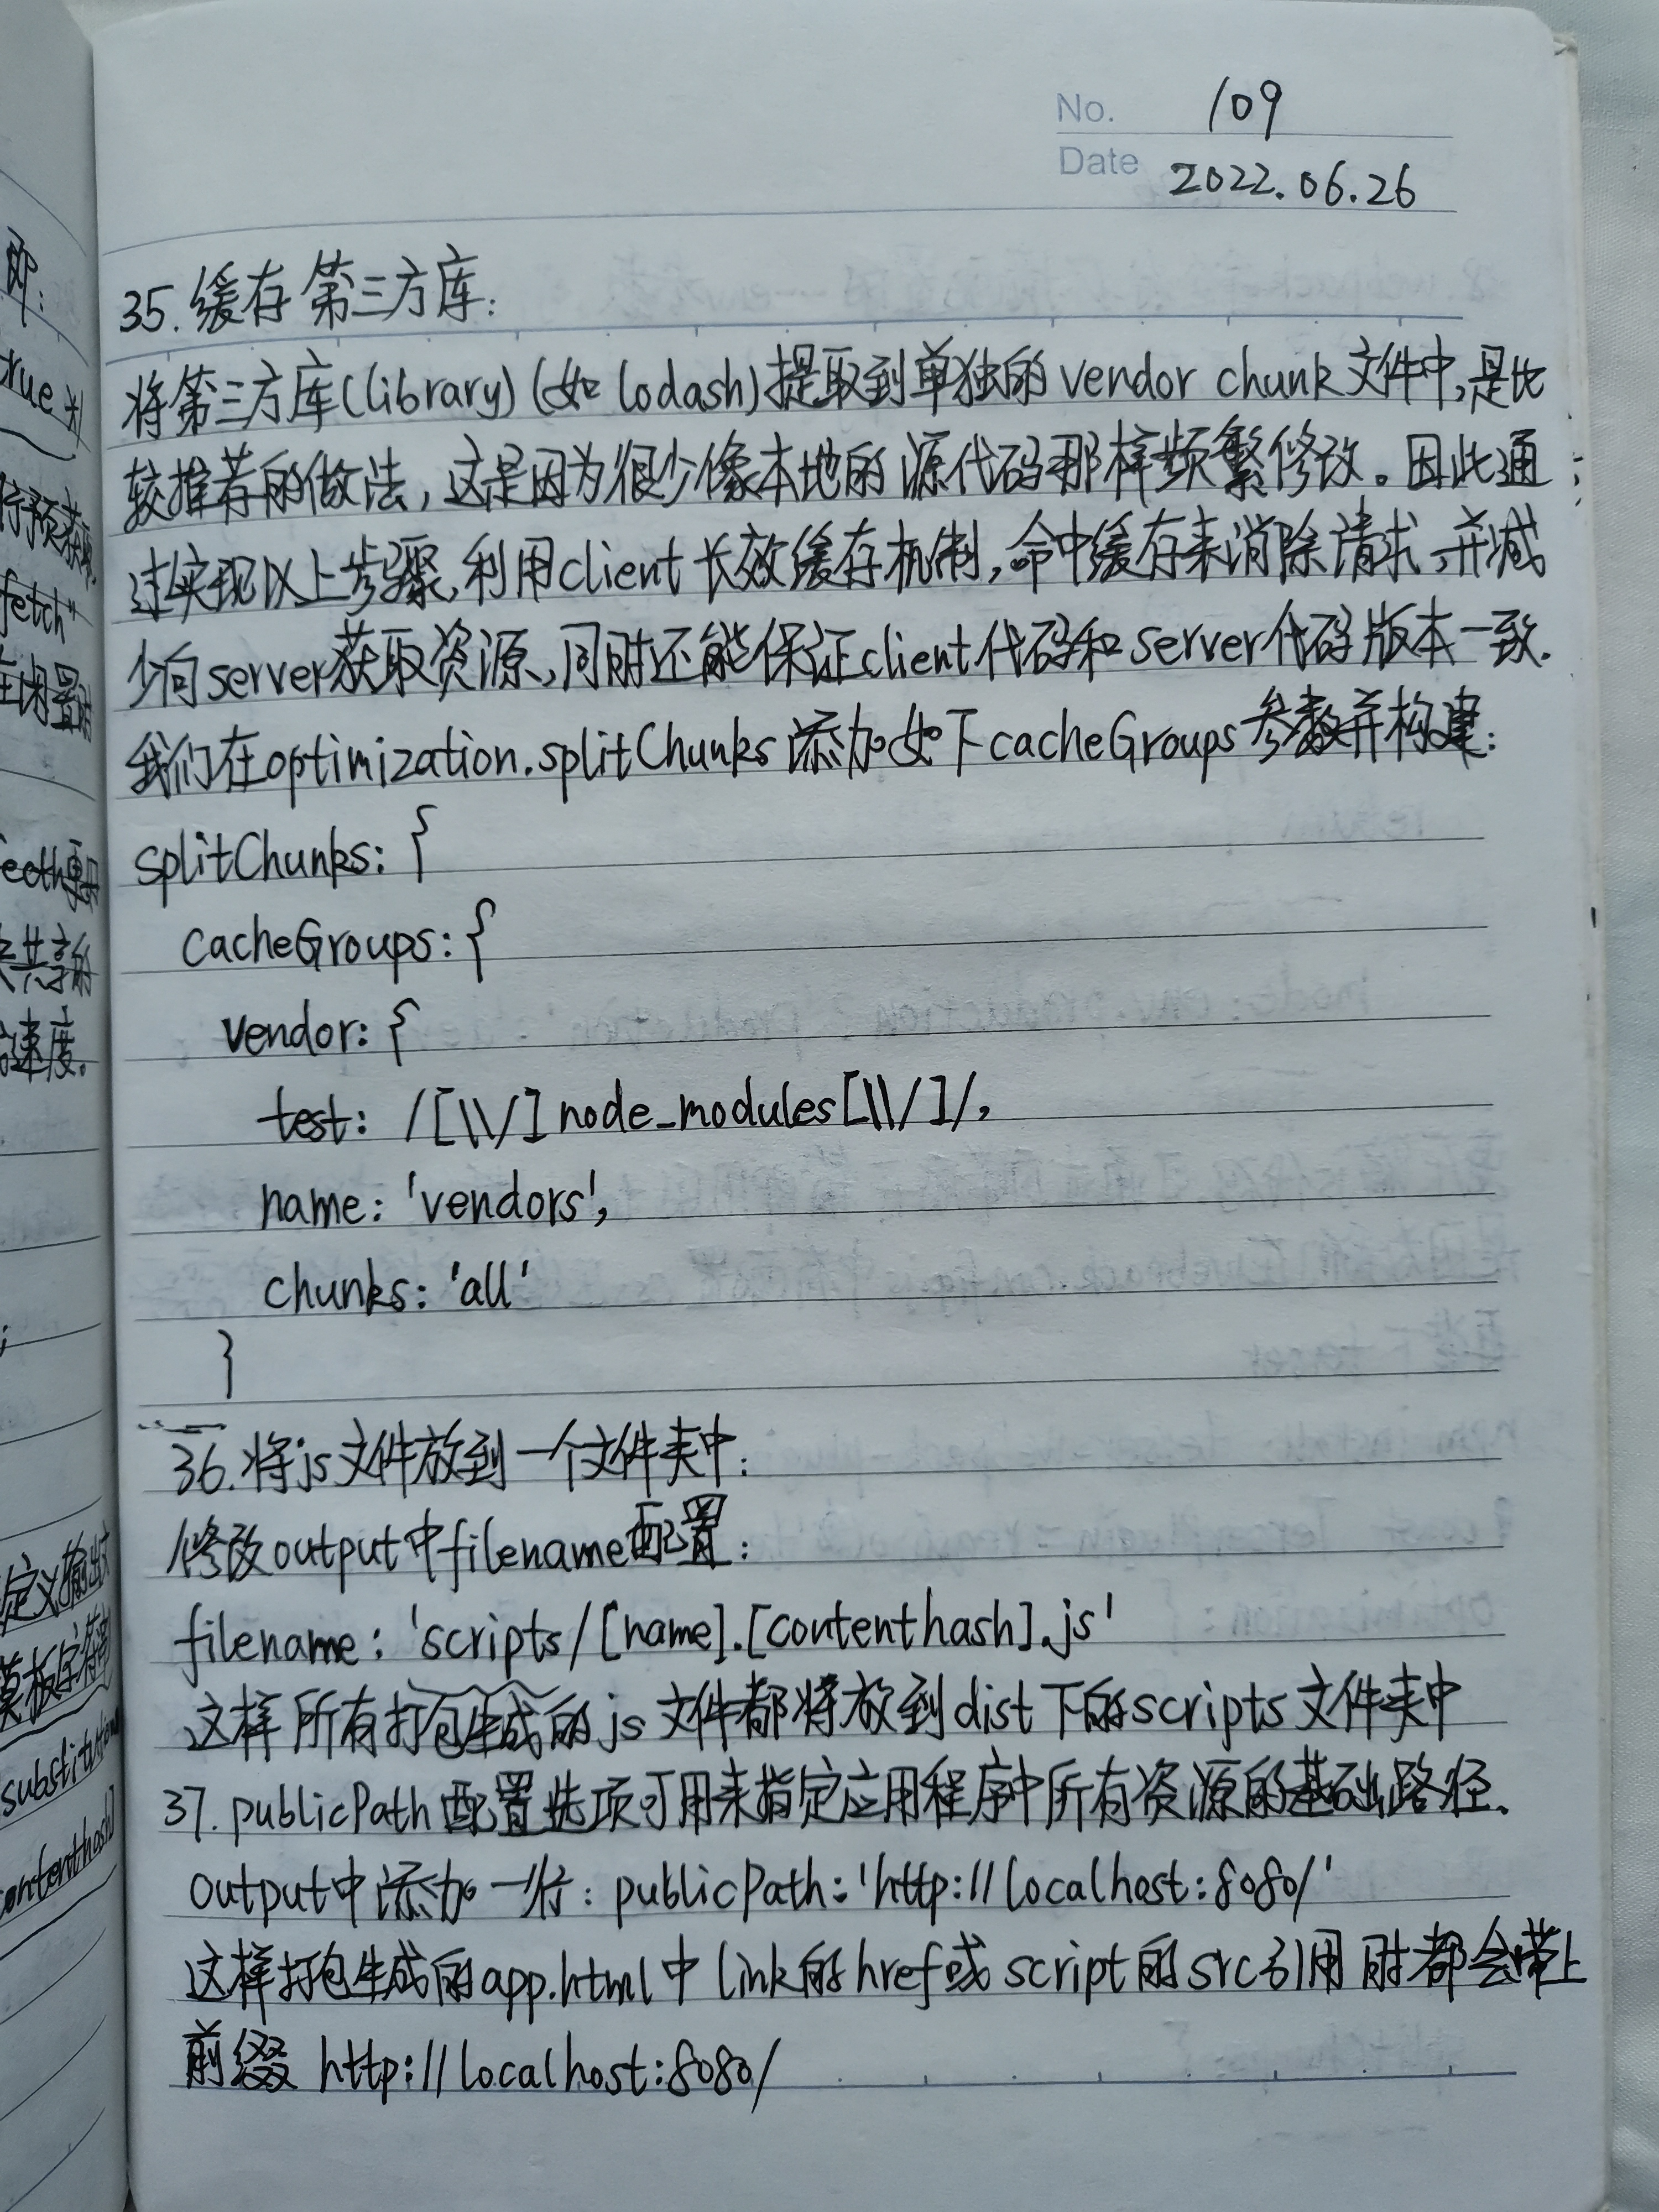 No. 109
Date 2022.06.26
35.缓存第三方库:
将第三方库(library)(如lodash)提取到单独的vendor chunk文件中,是比
较推荐的做法,这是因为很少像本地的源代码那样频繁修改。因此通
过实现以上步骤,利用client长效缓存机制,命中缓存来消除请求,并减
少向server获取资源,同时还能保证client代码和server代码版本一致.
我们在optimization.splitChunks添加如下cacheGroups参数并构建:
splitChunks: {
cacheGroups: {
vendor: {
test: /[\\/]node_modules[\\/]/,
name: 'vendors',
chunks: 'all'
}
36.将js文件放到一个文件夹中:
修改output中filename配置:
filename: 'scripts/[name].[contenthash].js'
这样所有打包生成的js文件都将放到dist下的scripts文件夹中
37. publicPath配置选项可用来指定应用程序中所有资源的基础路径.
output中添加一行: publicPath: 'http://localhost:8080/'
这样打包生成的app.html中link的href或script的src引用时都会带上
前缀 http://localhost:8080/
即:
true 对
行预获取
fetch"
在闲置时
共享的
速度。
定义输出文
模板字符串
substitution
contenthash]